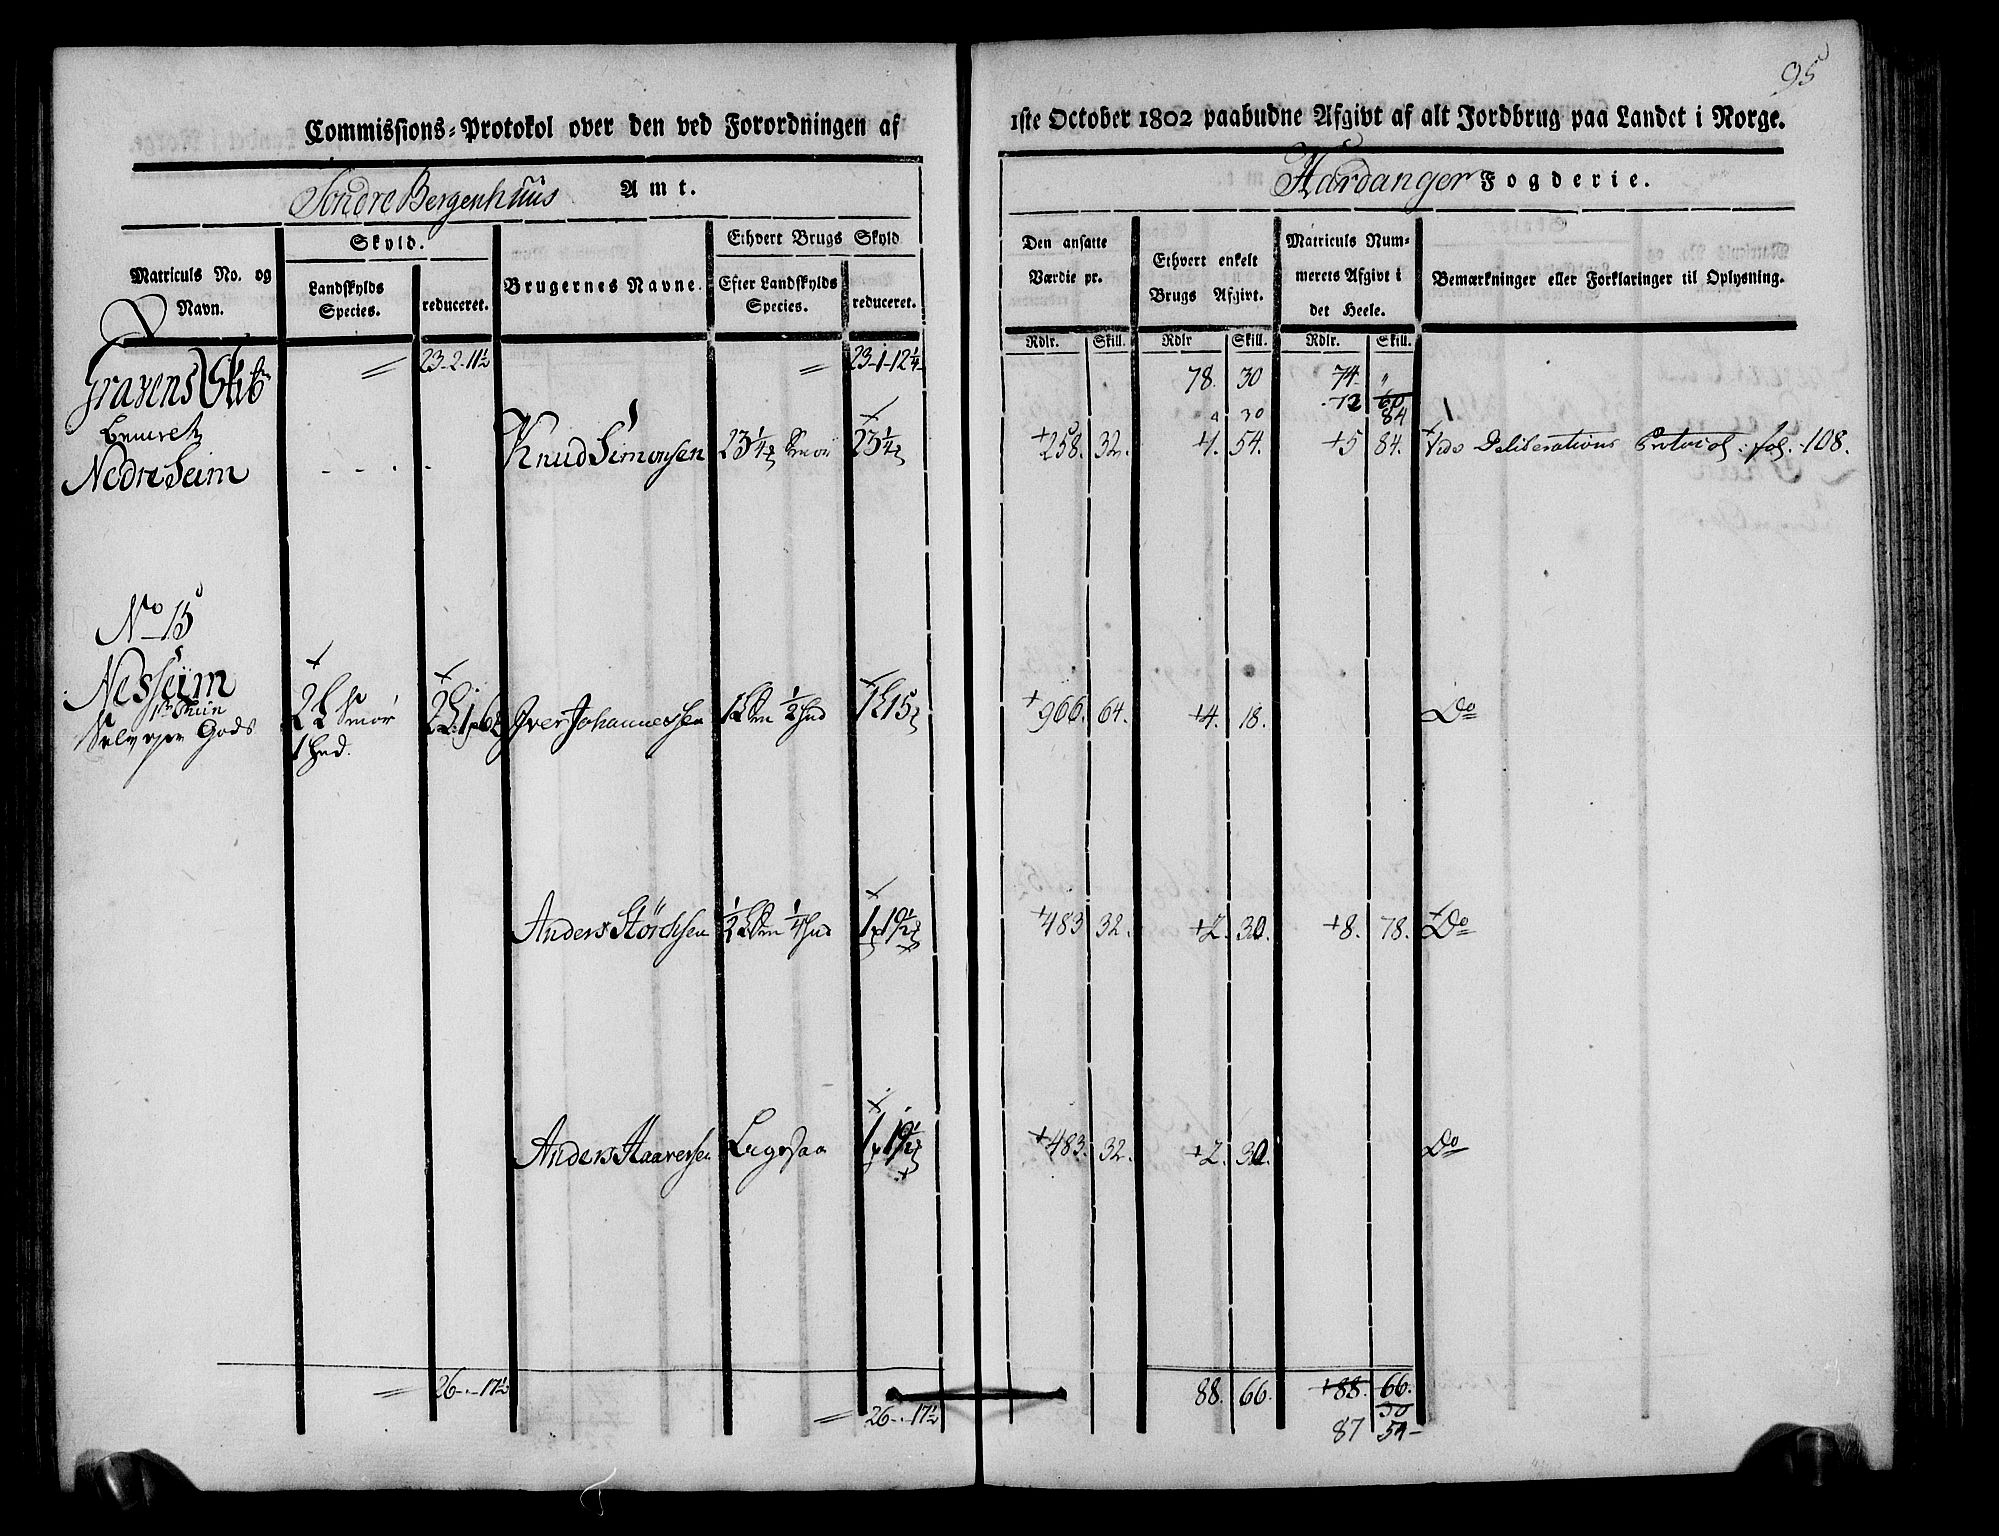 95
Commissions-Protokol over den ved Forordningen af
1ste October 1802 paabudne Afgivt af alt Jordbrug paa Landet i Norge.
Søndre Bergenhuus Amt.
Hardanger Fogderie.
Matriculs No. og Navn.
Skyld.
Landskylds Species.
reduceret.
Brugernes Navne.
Ethvert Brugs Skyld
Efter Landskylds Species.
reduceret.
Den ansatte Værdie pr.
Ethvert enkelt Brugs Afgivt.
Matriculs Nummerets Afgivt i det Heele.
Bemærkninger eller Forklaringer til Oplysning.
Rdlr. Skill. Rdlr Skill. Rdlr. Skill.
Gravens Skib
23-2-11½ 23-1-12¼ 78. 30 74. "
12 60
84
Nedre Seim Knud Simonsen 23¼ Smør 23¼ 258. 32. 4. 54. 5 84. Vide Deliberations Protocol: fol. 108.
No 15
Nesseim
Selv ejer Gods Smør 1 Hud. Iver Johannessen ½ Hud 966. 64. 4. 18. Do
Anders Størchsen ¼ Hud 483 32. 2. 30. 8. 78. Do
Anders Haaversen Ligesaa 483. 32. 2. 30. Do
26-.-17½ 26-.-17½ 88. 66. 88. 66.
30
87 54